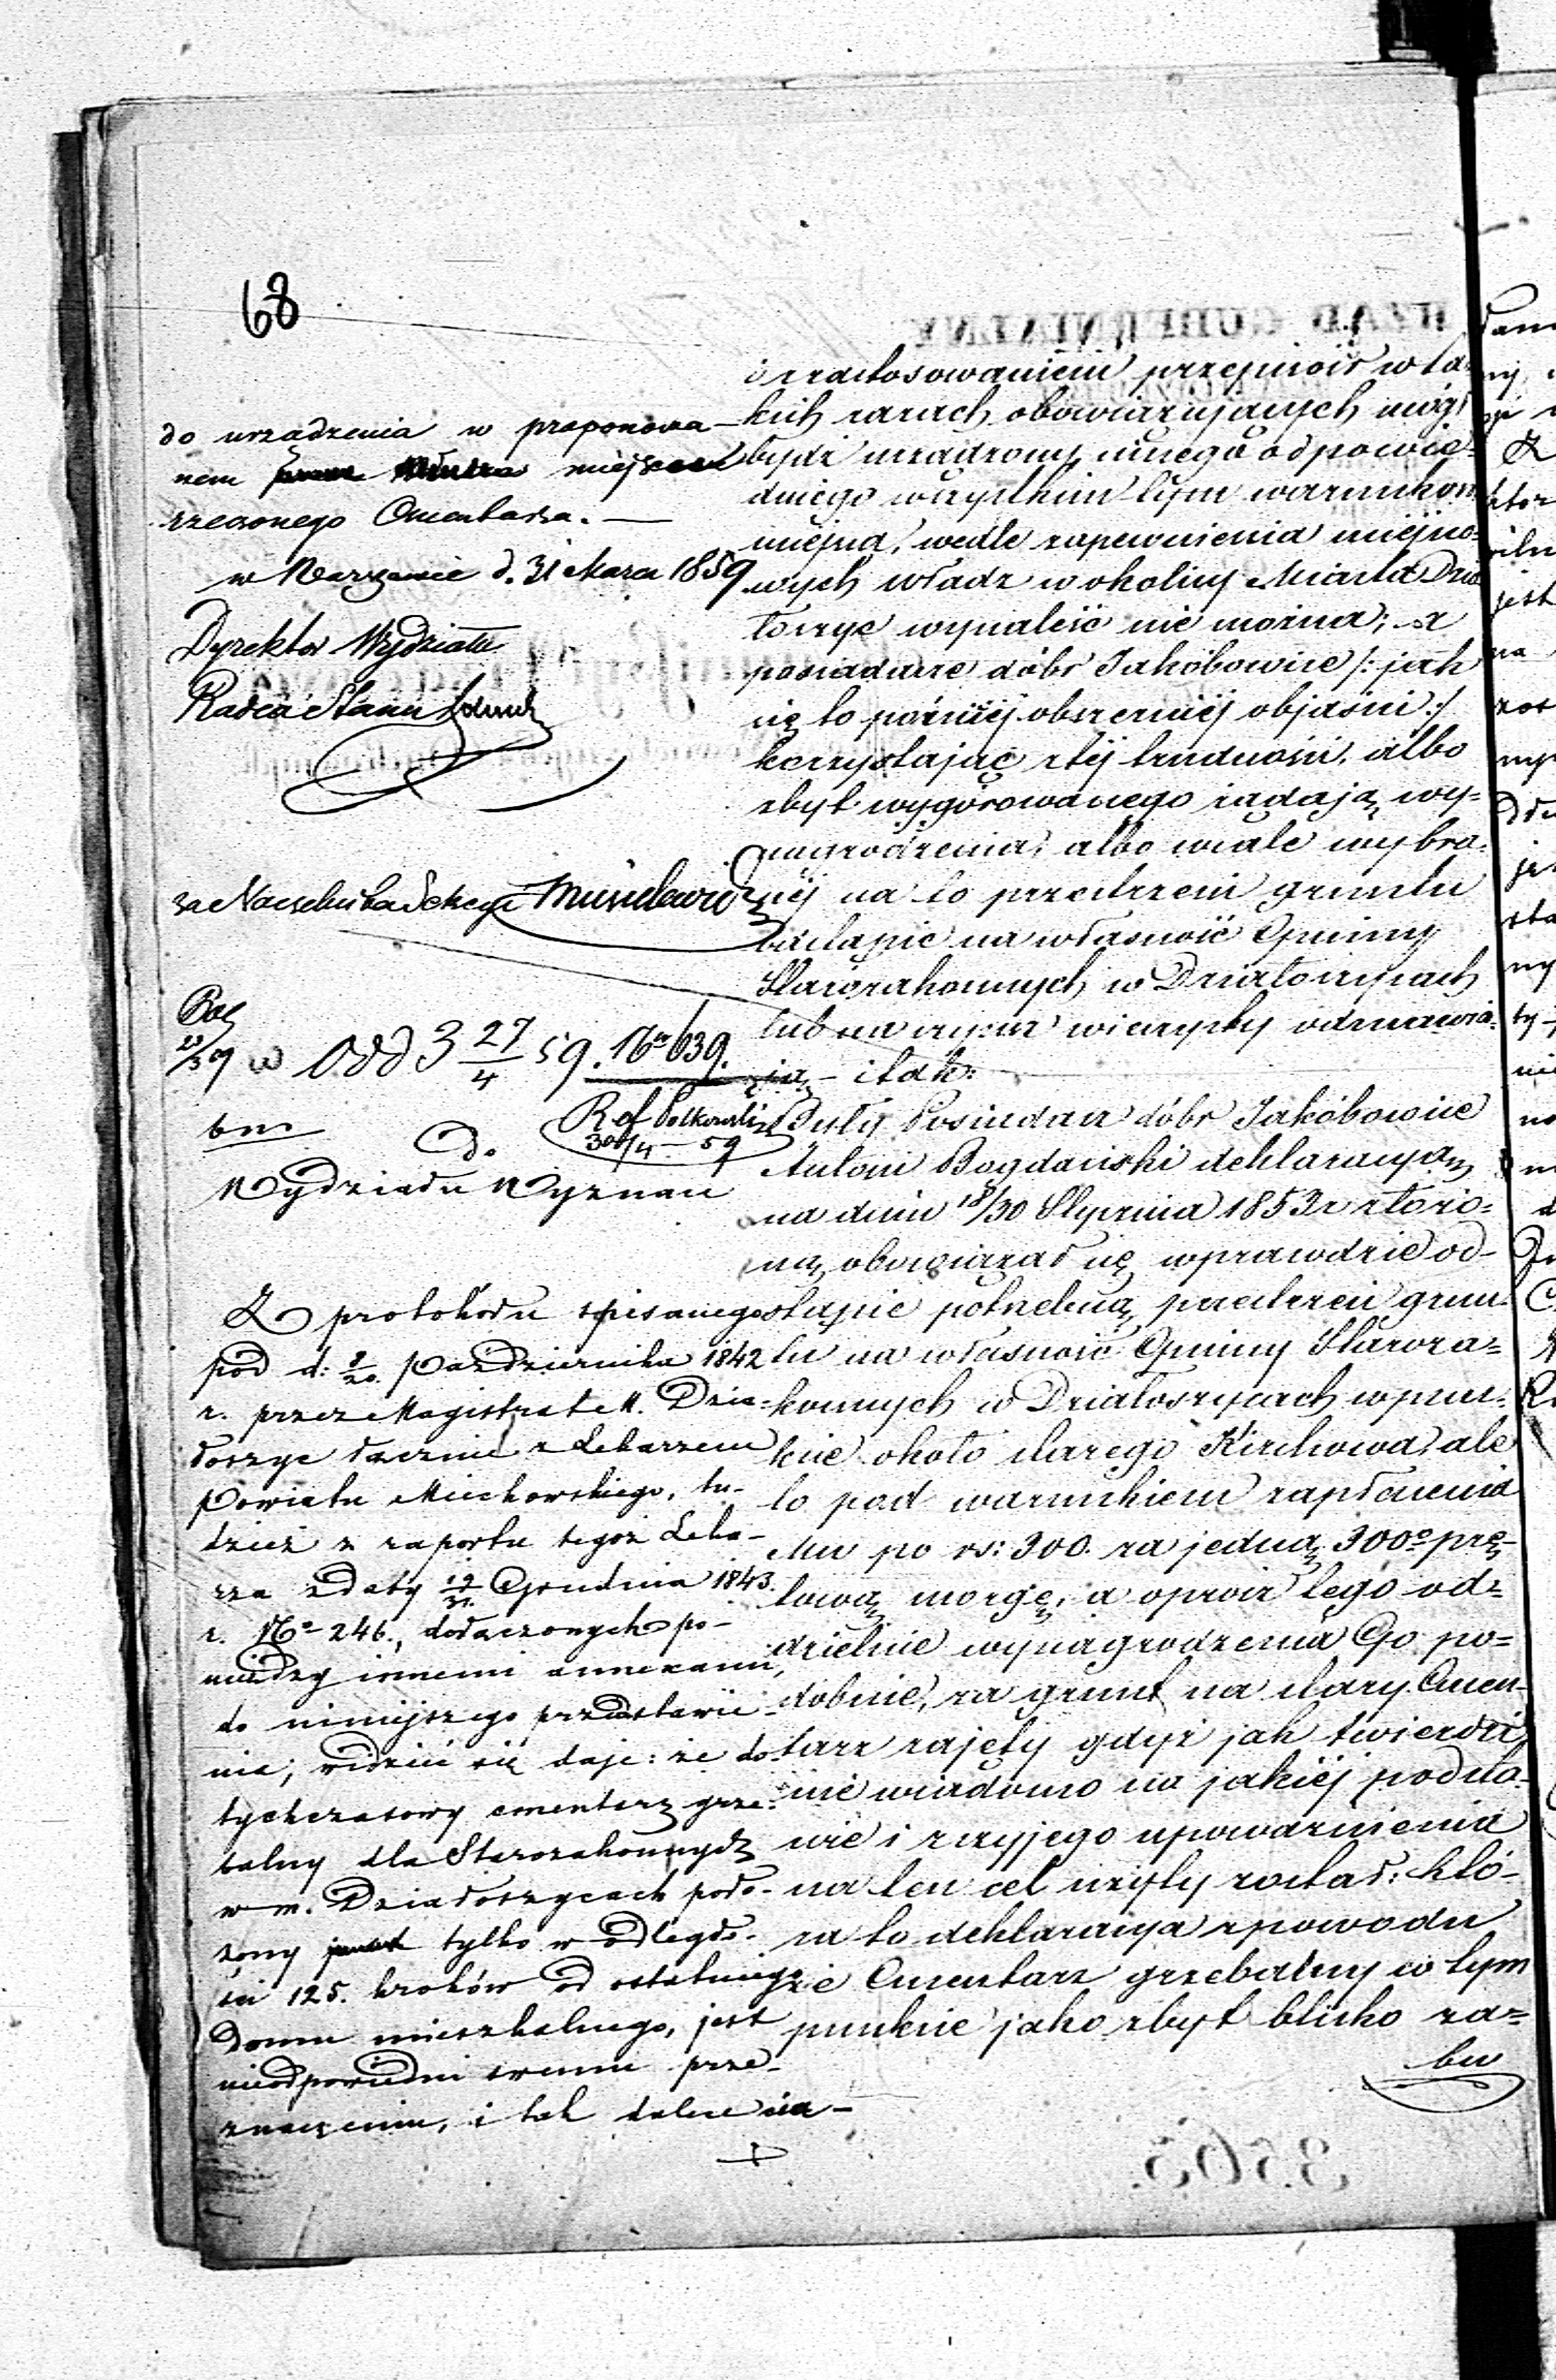 68
do urządzenia w propono­wa-
nem miejscu
rzeczonego Cmentarza. —
w Warszawie d. 31 Marca 1859
Dyrektor Wydziału
Radca Stanu
za Naczelnika Sekcyi
w Odd 3 27/4 59. No 639.
Ref Polkowski
30/4 - 59
Do
Wydziału Wyznań
Z protokółu spisanego
pod d: 8/20. Października 1842
r. przez Magistrat M. Dzia-
łoszyc łącznie z Lekarzem
Powiatu Miechowskiego, tu-
dzież z raportu tegoż Leka-
rza z daty 19/31. Grudnia 1843.
r. No 246., dołączonych po-
między innemi annexami,
do niniejszego przedstawie-
nia, widzieć się daje: że do-
tychczasowy cmentarz grze-
balny dla Starozakonnych
w m. Działoszycach poło-
żony tylko w odległo-
ści 125. kroków od ostatniego
domu mieszkalnego, jest
nieodpowiedni swemu prze-
znaczeniu, i tak dalece
i zastosowaniem przepisów w ta-
kich razach obowiązujących mógł
bydź urządzony, innego odpowie-
dniego wszystkim tym warunkom
miejsca, wedle zapewnienia miejsco-
wych władz w okolicy Miasta Dzia
łoszyc wynaleść nie można; a
posiadacze dóbr Jakóbowice /: jak
się to poźniéj obszerniéj objaśni :/
korzystając z téj trudności, albo
zbyt wygórowanego żądają wy-
nagrodzenia, albo wcale wybra-
néj na to przestrzeni gruntu
odstąpić na własność Gminy
Starozakonnych w Działoszycach
lub na czynsz wieczysty odmawia-
ją — i tak:
Były Posiadacz dóbr Jakóbowice
Antoni Bogdański deklaracyą
na dniu 18/30 Stycznia 1853 r złożo-
ną, obowiązał się wprawdzie od-
stąpić potrzebną przestrzeń grun-
tu na własność Gminy Staroza-
konnych w Działoszycach w pun-
kcie około starego Kirchowa, ale
to pod warunkiem zapłacenia
Mu po rs: 300. za jedną 300o prę-
tową morgę, a oprócz tego od-
dzielnie wynagrodzenia Go po-
dobnie, za grunt na stary Cmen-
tarz zajęty gdyż jak twierdzi
nie wiadomo na jakiéj podsta-
wie i z czyjego upoważnienia
na ten cel użyty został: któ-
ra to deklaracya z powodu
że Cmentarz grzebalny w tym
punkcie jako zbyt blisko za-
bu